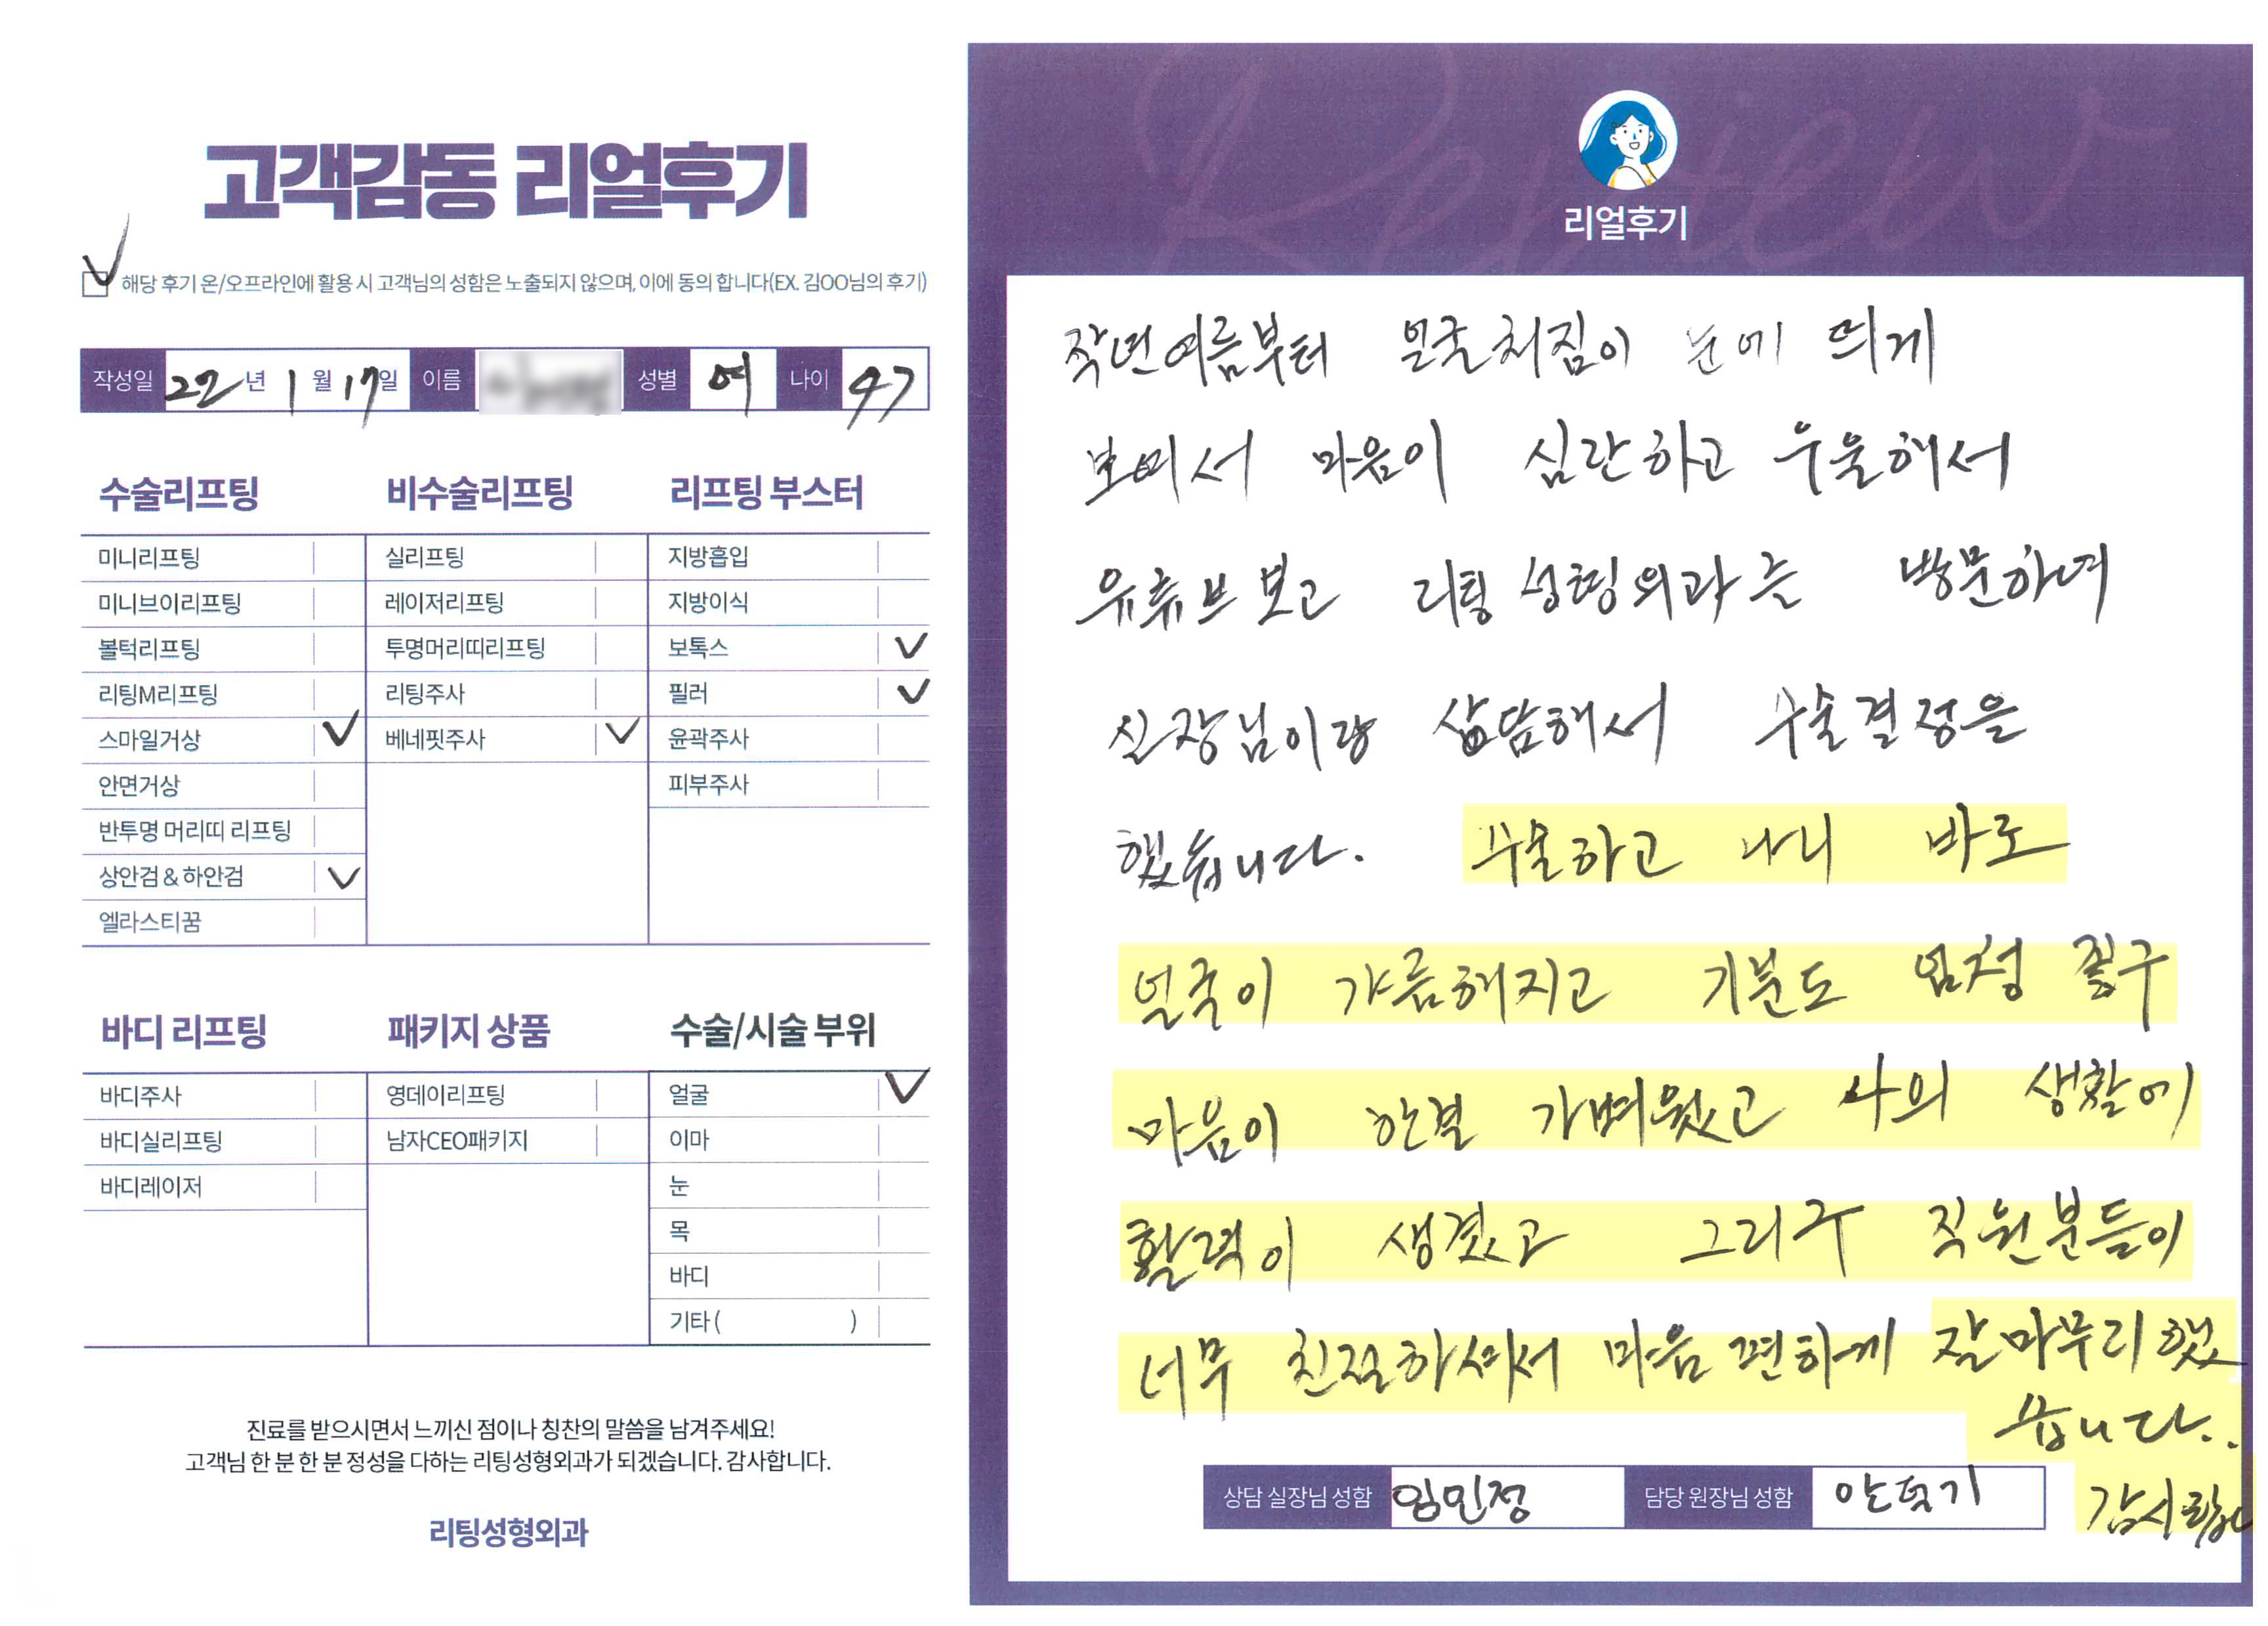 고객감동 리얼후기
해당 후기 온/오프라인에 활용 시 고객님의 성함은 노출되지 않으며, 이에 동의 합니다(EX. 김OO님의 후기)
작성일 22년 1월 17일 이름 성별 여 나이 47
수술리프팅
미니리프팅
미니브이리프팅
볼턱리프팅
리팅M리프팅
스마일거상 ✓
안면거상
반투명 머리띠 리프팅
상안검 & 하안검 ✓
엘라스티꿈
비수술리프팅
실리프팅
레이저리프팅
투명머리띠리프팅
리팅주사
베네핏주사 ✓
리프팅 부스터
지방흡입
지방이식
보톡스 ✓
필러 ✓
윤곽주사
피부주사
바디 리프팅
바디주사
바디실리프팅
바디레이저
패키지 상품
영데이리프팅
남자CEO패키지
수술/시술 부위
얼굴 ✓
이마
눈
목
바디
기타 ( )
진료를 받으시면서 느끼신 점이나 칭찬의 말씀을 남겨주세요!
고객님 한 분 한 분 정성을 다하는 리팅성형외과가 되겠습니다. 감사합니다.
리팅성형외과
Review
리얼후기
작년여름부터 얼굴처짐이 눈에 띄게
보여서 마음이 심란하고 우울해서
유튜브보고 리팅성형외과를 방문하여
실장님이랑 상담해서 수술결정을
했습니다. 수술하고 나니 바로
얼굴이 갸름해지고 기분도 엄청 좋구
마음이 한결 가벼워졌고 나의 생활에
활력이 생겼고 그리구 직원분들이
너무 친절하셔서 마음편하게 잘마무리했
습니다..
상담 실장님 성함 임민정 담당 원장님 성함